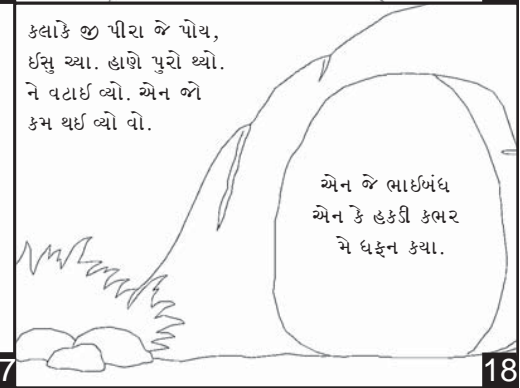 કલાકે જી પીરા જે પોય,
ઈસુ ચ્યા. હાણે પુરો થ્યો.
ને વટાઈ વ્યો. એન જો
કમ થઈ વ્યો વો.
એન જે ભાઈબંધ
એન કે હકડી કભર
મે ધફન કયા.
7
18